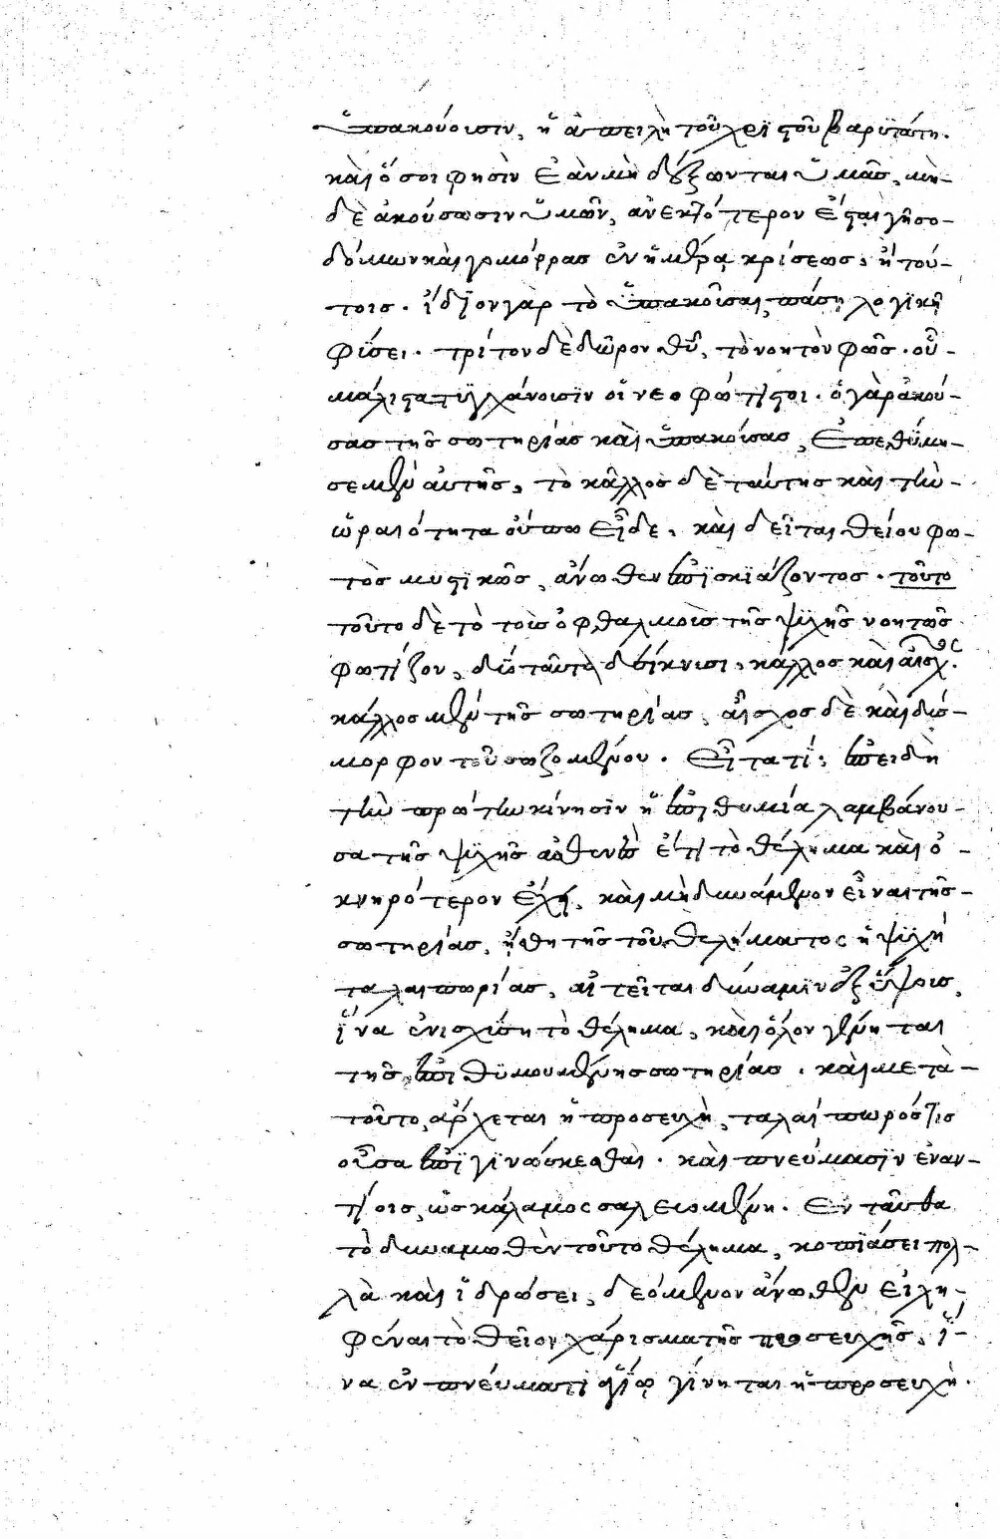 ὑπακούουσιν, ἡ ἀπειλὴ τοῦ χυ στοῦ βαρυτάτη.
καὶ ὅσοι φησὶν ἐὰν μὴ δέξωνται ὑμᾶς, μη-
δὲ ἀκούσωσιν ὑμῶν, ἀνεκτότερον ἔσται γῆ σο-
δόμων καὶ γομόρρας ἐν ἡμέρα κρίσεως, ἢ τού-
τοις. ἴδιον γὰρ τὸ ὑπακοῦσαι πάση λογικῆ
φύσει. τρίτον δὲ δῶρον θῦ, τὸ νοητὸν φῶς. οὗ
μάλιστα τυγχάνουσιν οἱ νεοφώτιστοι. ὁ γὰρ ἀκού-
σας τῆς σωτηρίας καὶ ὑπακούσας, ἐπεθύμη-
σε μὲν αὐτῆς, τὸ κάλλος δὲ ταύτης καὶ τὴν
ὡραιότητα οὔπω εἶδε, καὶ δεῖται θείου φω-
τὸς μυστικῶς, ἄνωθεν ἐπισκιάζοντος. τοῦτο
τοῦτο δὲ τὸ τοὺς ὀφθαλμοὺς τῆς ψυχῆς νοητῶς
φωτίζον, δύο ταῦτα δείκνυσι, κάλλος καὶ αἶσχος.
κάλλος μὲν τῆς σωτηρίας, αἶσχος δὲ καὶ δύσ-
μορφον τοῦ σωζομένου. εἶτα τί; ἐπειδὴ
τὴν πρώτην κίνησιν ἡ ἐπιθυμία λαμβάνου-
σα τῆς ψυχῆς ἀσθενὲς ἔτι τὸ θέλημα καὶ ὀ-
κνηρότερον ἔχει, καὶ μὴ δυνάμενον εἶναι τῆς
σωτηρίας, ἤσθη τῆς τοῦ θελήματος ἡ ψυχὴ
ταλαιπωρίας, αἰτεῖται δύναμιν ἐξ ὕψους,
ἵνα ἐνισχύση τὸ θέλημα, καὶ ὅλον γένηται
τῆς ἐπιθυμουμένης σωτηρίας. καὶ μετὰ
τοῦτο, ἄρχεται ἡ προσευχὴ, ταλαίπωρός τις
οὖσα ἐπιγινώσκεσθαι. καὶ πνεύμασιν ἐναν-
τίοις, ὡς κάλαμος σαλευομένη. ἐνταῦθα
τὸ δυναμωθὲν τοῦτο θέλημα, κοπιάσει πολ-
λὰ καὶ ἱδρώσει, δεόμενον ἄνωθεν εἰλη-
φέναι τὸ θεῖον χάρισμα τῆς προσευχῆς, ἵ-
να ἐν πνεύματι ἁγίω γίνηται ἡ προσευχὴ.